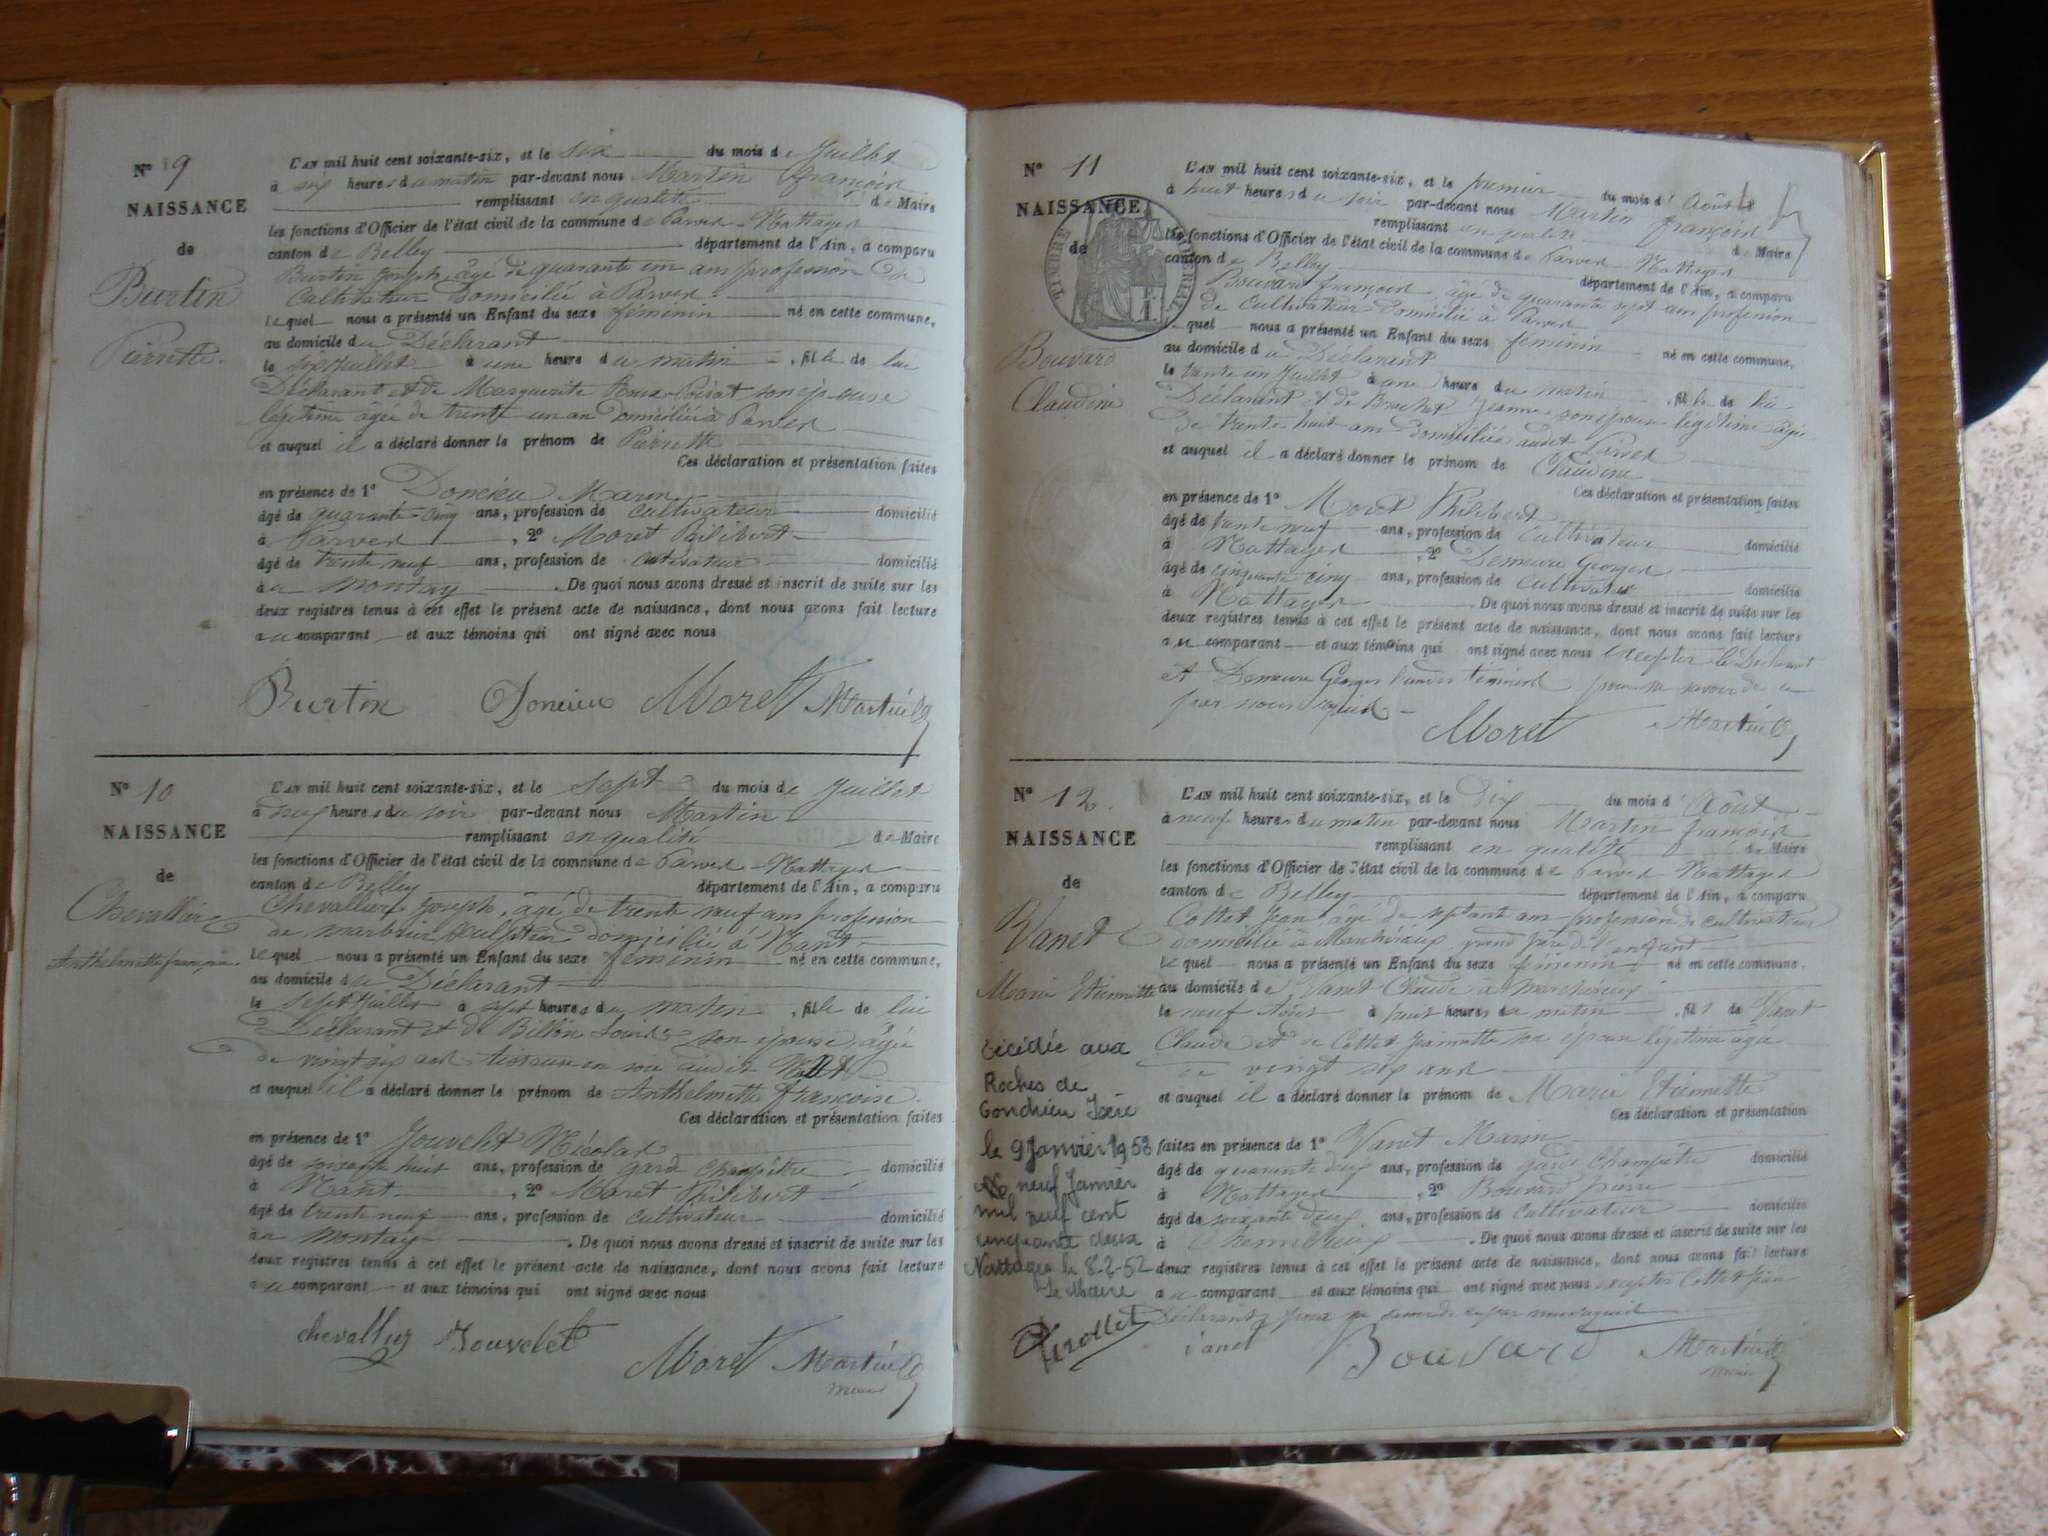 N° 9
NAISSANCE
de
Burtin
Pierrette.
L'AN mil huit cent soixante-six, et le six du mois de Juillet
à six heures du matin par-devant nous Martin François
remplissant en qualité de Maire
les fonctions d'Officier de l'état civil de la commune de Parves-Nattages
canton de Belley département de l'Ain, a comparu
Burtin Joseph, âgé de quarante un ans profession de
Cultivateur Domicilié à Parves
lequel nous a présenté un Enfant du sexe féminin né en cette commune,
au domicile du Déclarant
le six Juillet à une heure du matin, fille de lui
Déclarant et de Marguerite Roux-Poirat son épouse
légitime âgée de trente un an Domiciliée à Parves
et auquel il a déclaré donner le prénom de Pierrette
Ces déclaration et présentation faites
en présence de 1° Doncieu Marin
âgé de quarante-cinq ans, profession de cultivateur domicilié
à Parves, 2° Moret Philibert
âgé de trente neuf ans, profession de cultivateur domicilié
à Montay. De quoi nous avons dressé et inscrit de suite sur les
deux registres tenus à cet effet le présent acte de naissance, dont nous avons fait lecture
au comparant et aux témoins qui ont signé avec nous
Burtin Doncieu Moret Martin
N° 10
NAISSANCE
de
Chevallier
Anthelmette françoise.
L'AN mil huit cent soixante-six, et le sept du mois de Juillet
à heures du soir par-devant nous Martin
remplissant en qualité de Maire
les fonctions d'Officier de l'état civil de la commune de Parves-Nattages
canton de Belley département de l'Ain, a comparu
Chevallier Joseph, âgé de trente neuf ans profession
de marbrier domicilié à Nant
lequel nous a présenté un Enfant du sexe féminin né en cette commune,
au domicile du Déclarant
le sept Juillet à sept heures du matin, fille de lui
Déclarant et de Billon son épouse, âgée
de vingt six ans en soie audit Nant
et auquel il a déclaré donner le prénom de Anthelmette Françoise.
Ces déclaration et présentation faites
en présence de 1° Jouvelet Nicolas
âgé de soixante huit ans, profession de garde champêtre domicilié
à Nant, 2° Moret Philibert
âgé de trente neuf ans, profession de cultivateur domicilié
à Montay. De quoi nous avons dressé et inscrit de suite sur les
deux registres tenus à cet effet le présent acte de naissance, dont nous avons fait lecture
au comparant et aux témoins qui ont signé avec nous
chevallier Jouvelet
Moret Martin
maire
N° 11
NAISSANCE
de
TIMBRE IMPÉRIAL
Bouvard
Claudine
L'AN mil huit cent soixante-six, et le premier du mois d'Août
à huit heures du soir par-devant nous Martin François
remplissant en qualité de Maire
les fonctions d'Officier de l'état civil de la commune de Parves-Nattages
canton de Belley département de l'Ain, a comparu
Bouvard françois, âgé de quarante sept ans profession
de cultivateur Domicilié à Parves
quel nous a présenté un Enfant du sexe féminin né en cette commune,
au domicile du Déclarant
le trente un Juillet à une heure du matin, fille de lui
Déclarant et de Brochet Jeanne son épouse légitime âgée
de trente huit ans domiciliée audit Parves
et auquel il a déclaré donner le prénom de Claudine
Ces déclaration et présentation faites
en présence de 1° Moret Philibert
âgé de trente neuf ans, profession de cultivateur domicilié
à Nattages, 2° Demeure Georges
âgé de cinquante cinq ans, profession de cultivateur domicilié
à Nattages. De quoi nous avons dressé et inscrit de suite sur les
deux registres tenus à cet effet le présent acte de naissance, dont nous avons fait lecture
au comparant et aux témoins qui ont signé avec nous excepter le Déclarant
et Demeure Georges l'un des témoins pour ne savoir de ce
par nous requis
Moret Martin
N° 12
NAISSANCE
de
Vanet
Marie Etiennette
Décédée aux
Roches de
Condrieu Isère
le 9 Janvier 1952
neuf Janvier
mil neuf cent
cinquante deux
Nattages le 8-2-52
Le Maire
L'AN mil huit cent soixante-six, et le dix du mois d'Août
à neuf heures du matin par-devant nous Martin françois
remplissant en qualité de Maire
les fonctions d'Officier de l'état civil de la commune de Parves Nattages
canton de Belley département de l'Ain, a comparu
Cottet Jean âgé de septant ans profession de cultivateur
domicilié à grand père de l'enfant
lequel nous a présenté un Enfant du sexe féminin né en cette commune,
au domicile de Vanet Claude à
le neuf Août à huit heures du matin, fils de Vanet
Claude et de Cottet Jeannette son épouse légitime âgée
de vingt six ans
et auquel il a déclaré donner le prénom de Marie Etiennette
Ces déclaration et présentation
faites en présence de 1° Vanet Marin
âgé de quarante deux ans, profession de garde champêtre domicilié
à Nattages, 2° Bouvard pierre
âgé de soixante deux ans, profession de cultivateur domicilié
à. De quoi nous avons dressé et inscrit de suite sur les
deux registres tenus à cet effet le présent acte de naissance, dont nous avons fait lecture
au comparant et aux témoins qui ont signé avec nous excepter Cottet Jean
Déclarant, pour ne savoir de ce par nous requis
Vanet Bouvard Martin
maire